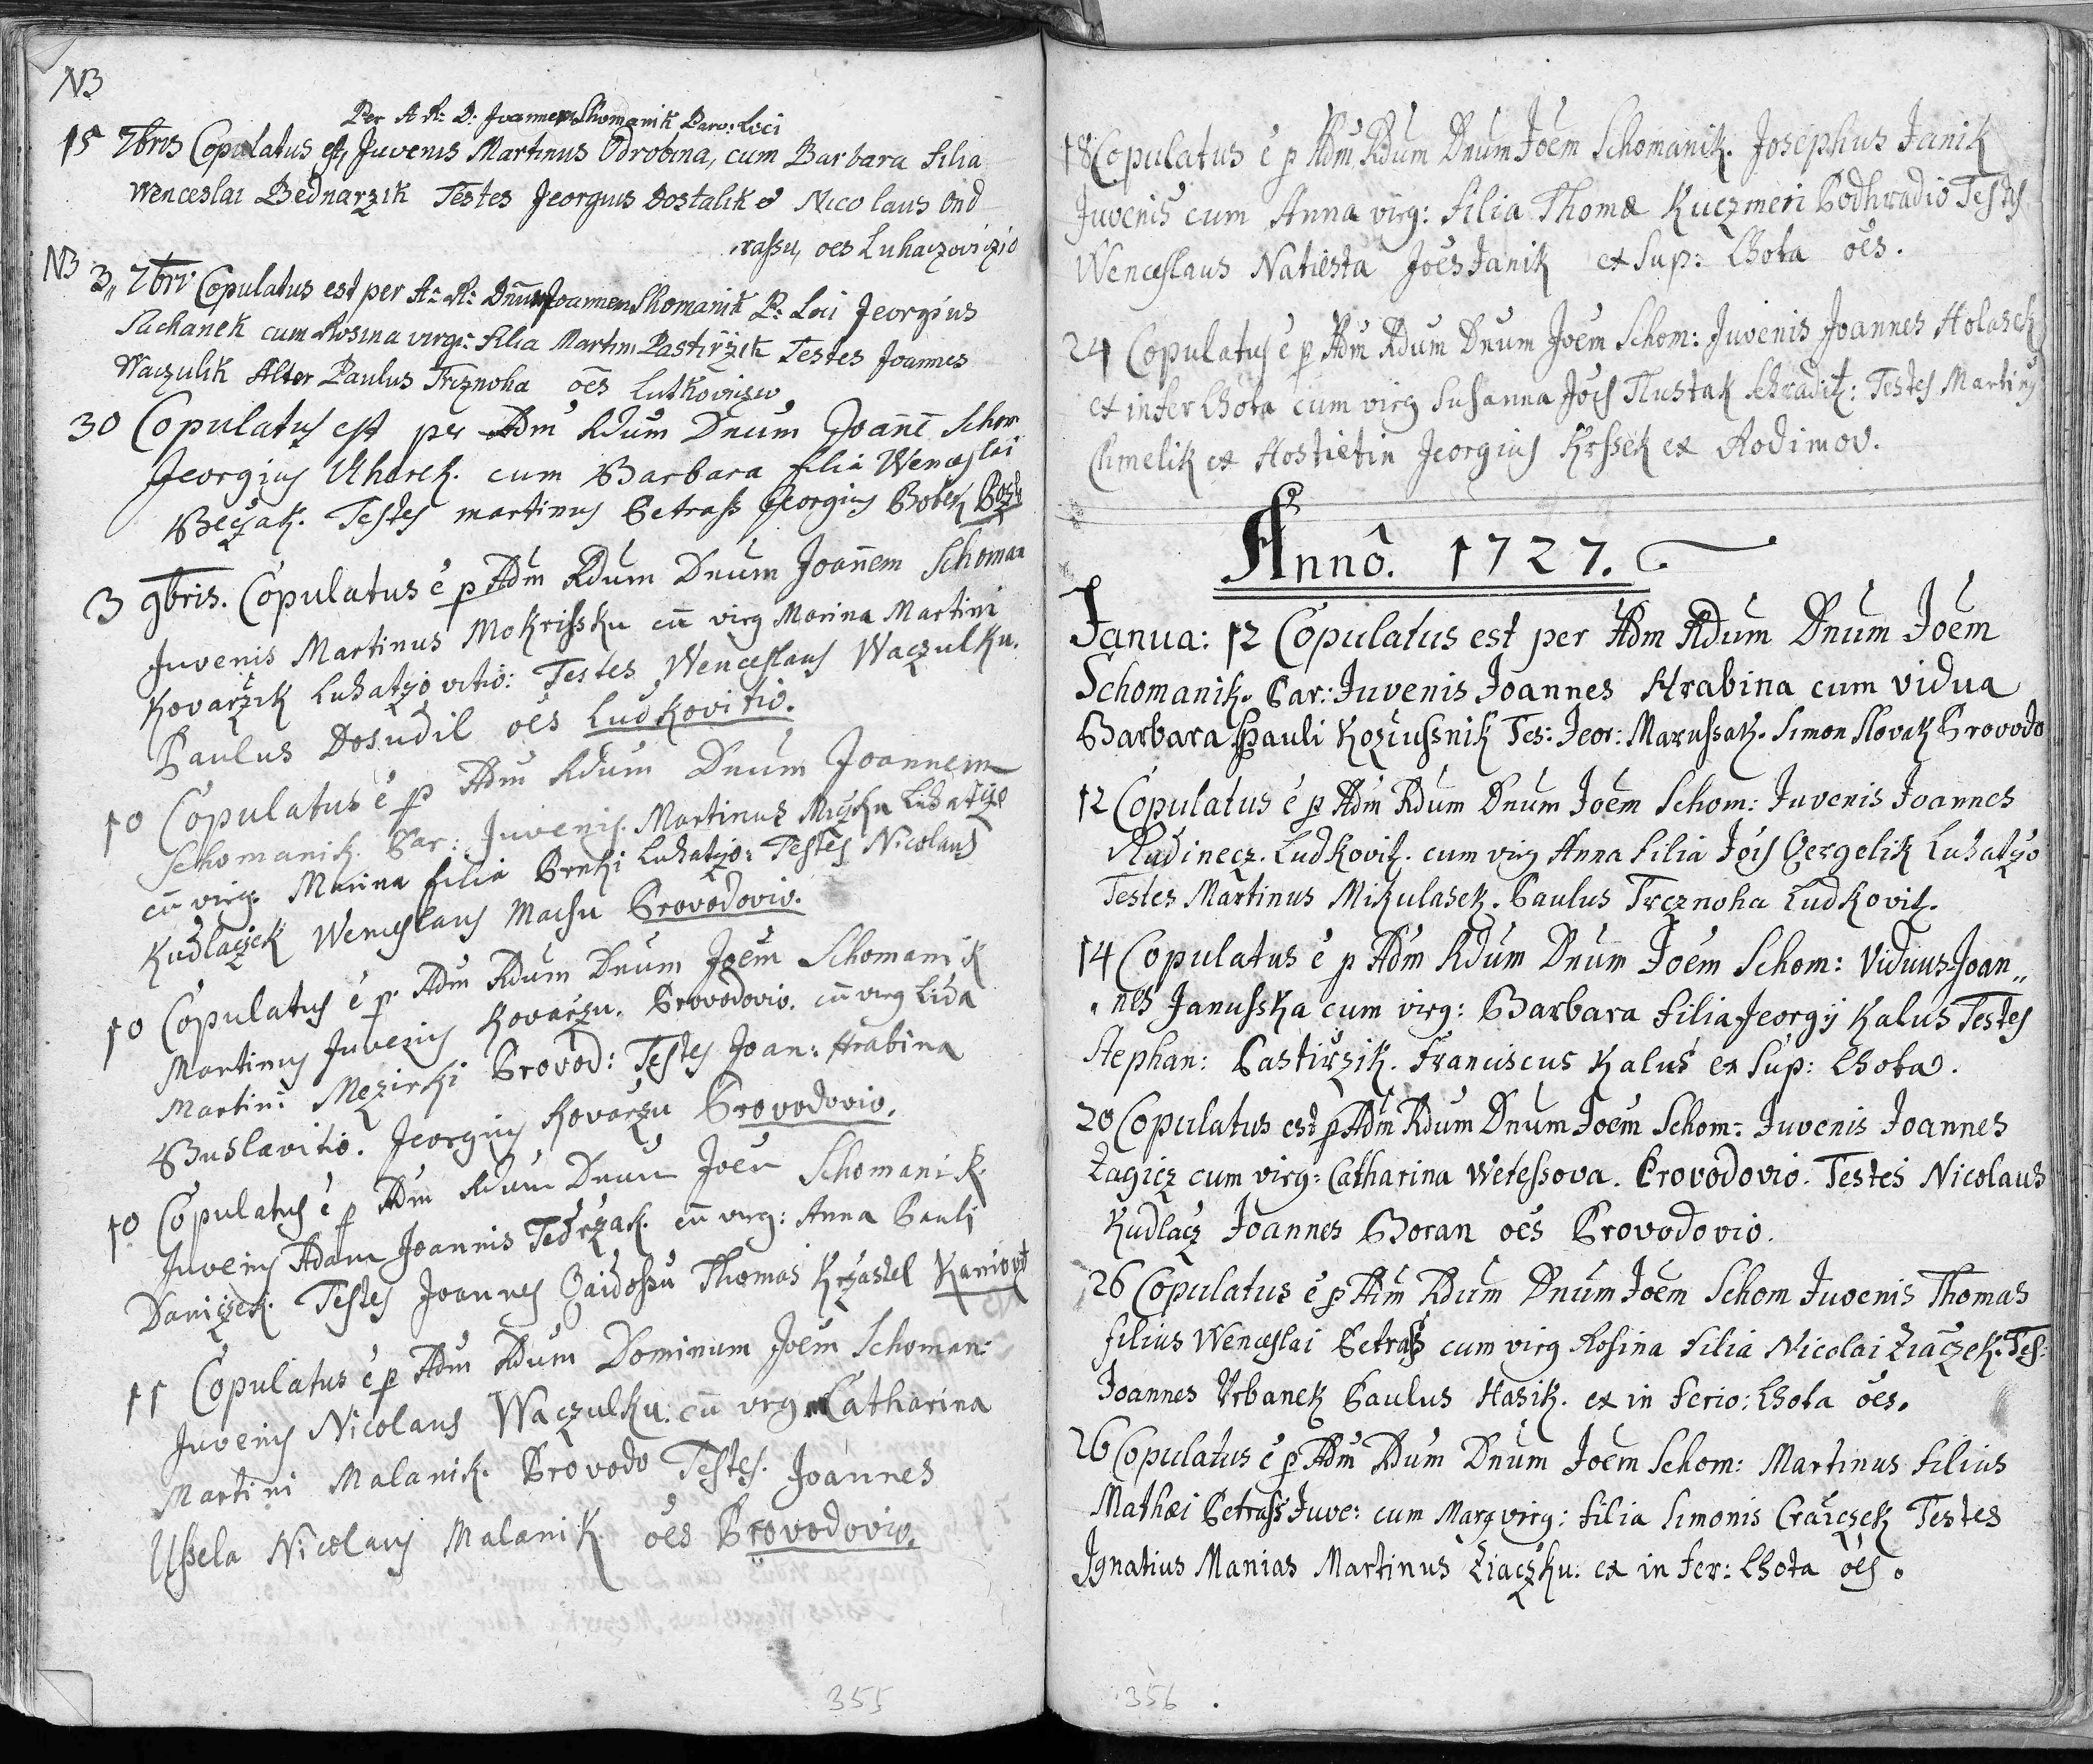 NB
Per A R: D: Joannem Shomanik Paro: Loci
15 7bris Copulatus est, Juvenis Martinus Odrobina, cum Barbara filia
Wenceslai Bednarzik Testes Jeorgius Dostalik & Nicolaus Ond
rassu, oes Luhaczoviczio
NB 3,, 7bri Copulatus est per A: R: Dnum Joannem Shomanik P: Loci Jeorgius
Sachanek cum Rosina virg: filia Martini Pastirzik Testes Joannes
Waczulik Alter Paulus Trznoha oes Lutkovicio
30 Copulatus est per Adm Rdum Dnum Joañē Schom
Jeorgius Uharek. cum Barbara filia Wenceslai
Beczak. Testes martinus Petrass Jeorgius Bobek
3 9bris. Copulatus ē p Adm Rdum Dnum Joañem Schoman
Juvenis Martinus Mokrissku cū virg Marina Martini
Kovarzik Luhatzovitio: Testes Wenceslaus Waczulku.
Paulus Dosudil oēs Ludkovitio.
10 Copulatus ē p Adm Rdum Dnum Joannem
Schomanik. Par: Juvenis. Martinus Luhatzo
cū virg. Marina filia Luhatzo: Testes Nicolaus
Kudlaczek Wenceslaus Machu Provodovio.
10 Copulatus ē p Adm Rdum Dnum Joēm Schomanik
Martinus Juvenis Kovarzu. Provodovio. cū virg Lida
Martini Mezirki Provod: Testes Joan: Hrabina
Buslavitio. Jeorgius Kovarzu Provodovio.
10 Copulatus ē p Adm Rdum Dnum Joēm Schomanik.
Juvenis Adam Joannis Tedrzak. cū virg: Anna Pauli
Daniczek. Testes Joannes Gaidossu Thomas Krzastel
11 Copulatus ē p Adm Rdum Dominum Joēm Schoman:
Juvenis Nicolaus Waczulku. cū virg Catharina
Martini Malanik. Provodo Testes. Joannes
Ussela Nicolaus Malanik oēs Provodovio.
355
18 Copulatus ē p Adm Rdum Dnum Joēm Schomanik. Josephus Janik
Juvenis cum Anna virg: filia Thomæ Kuczmeri Podhradio Testes
Wenceslaus Natiesta Joēs Janik ex Sup: Lhota oēs.
24 Copulatus ē p Adm Rdum Dnum Joēm Schom: Juvenis Joannes Holasek
ex infer Lhota cum virg Susanna Jois Tlustak Testes Martinus
Chmelik ex Hostietin Jeorgius Krssek ex Rodimov.
Annô. 1727.
Janua: 12 Copulatus est per Adm Rdum Dnum Joēm
Schomanik. Par: Juvenis Joannes Hrabina cum vidua
Barbara Pauli Koziussnik Tes: Jeor: Marussak. Simon Slovak Provodo
12 Copulatus ē p Adm Rdum Dnum Joēm Schom: Juvenis Joannes
Rudinecz. Ludkovitz. cum virg Anna filia Jois Gergelik Luhatzo
Testes Martinus Mikulasek. Paulus Trcznoha Ludkovitz.
14 Copulatus ē p Adm Rdum Dnum Joēm Schom: Viduus Joan,,
nes Janusska cum virg: Barbara filia Jeorgij Kalus Testes
Stephan: Pastirzik. Franciscus Kalus ex Sup: Lhota.
20 Copulatus est p Adm Rdum Dnum Joēm Schom: Juvenis Joannes
Zagicz cum virg: Catharina Wetessova. Provodovio. Testes Nicolaus
Kudlacz Joannes Boran oēs Provodovio.
26 Copulatus ē p Adm Rdum Dnum Joēm Schom Juvenis Thomas
filius Wenceslai Petrass cum virg Rosina filia Nicolai Ziaczek. Tes:
Joannes Urbanek Paulus Hasik. ex in ferio: Lhota oēs.
26 Copulatus ē p Adm Rdum Dnum Joēm Schom: Martinus filius
Mathæi Petrass Juve: cum Marg virg: filia Simonis Craiczek Testes
Ignatius Manias Martinus Ziaczku. ex in fer: Lhota oēs.
356